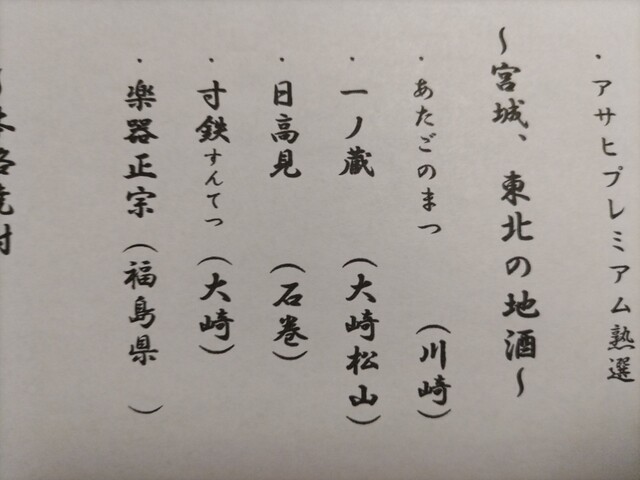 ・アサヒプレミアム熟選
～宮城、東北の地酒～
・あたごのまつ（川崎）
・一ノ蔵（大崎松山）
・日高見（石巻）
・寸鉄すんてつ（大崎）
・楽器正宗（福島県）
本格焼酎